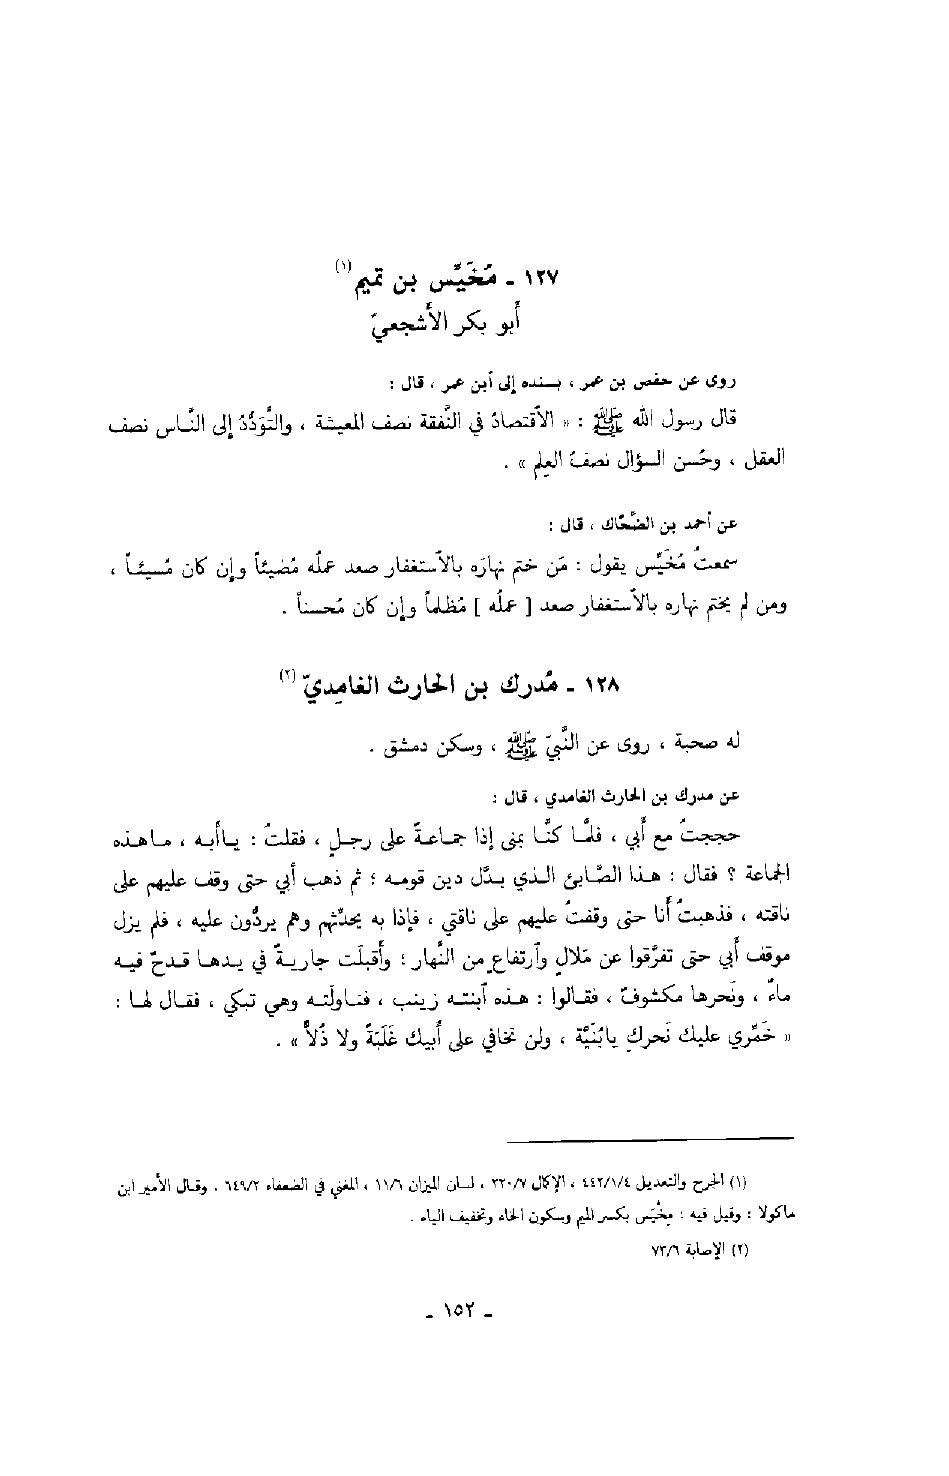 ١٢٧ ـ مُخَيَّس بن تميم(١)
أبو بكر الأشجعيّ
روى عن حفص بن عمر ، بسنده إلى أبن عمر ، قال :
قال رسول الله ﷺ : « الاٌقتصادُ في النَّفقة نصف المعيشة ، والتَّوَدُّدُ إلى النَّاس نصف
العقل ، وحُسن السؤال نصفُ العِلم » .
عن أحمد بن الضَّحَّاك ، قال :
سمعتُ مُخَيَّس يقول : مَن ختم نهارَه بالاٌستغفار صعد عملُه مُضيئاً وإن كان مُسيئاً ،
ومن لم يختم نهاره بالاٌستغفار صعد [ عملُه ] مُظلماً وإن كان مُحسناً .
١٢٨ ـ مُدرك بن الحارث الغامِديّ(٢)
له صحبة ، روى عن النَّبيّ ﷺ ، وسكن دمشق .
عن مدرك بن الحارث الغامدي ، قال :
حججتُ مع أَبي ، فلمَّا كنَّا بمنى إذا جماعةٌ على رجلٍ ، فقلتُ : ياأبه ، ماهذه
الجماعة ؟ فقال : هذا الصَّابئ الذي بدَّل دين قومه ؛ ثم ذهب أبي حتى وقف عليهم على
ناقته ، فذهبتُ أنا حتى وقفتُ عليهم على ناقتي ، فإذا به يحدِّثهم وهم يردُّون عليه ، فلم يزل
موقف أَبي حتى تفرَّقوا عن مَلالٍ وٱرتفاعٍ من النَّهار ؛ وأقبلَت جاريةٌ في يدها قدحٌ فيه
ماءٌ ، ونَحرها مكشوفٌ ، فقالوا : هذه ٱبنته زينب ، فناولَته وهي تبكي ، فقال لها :
« خَمِّري عليك نَحركِ يابُنَيَّة ، ولن تخافي على أبيك غَلَبَةً ولا ذُلاًّ » .
(١) الجرح والتعديل ٤٤٢/١/٤ ، الإكمال ٢٢٠/٧ ، لسان الميزان ١١/٦ ، المغني في الضعفاء ٦٤٩/٢ . وقال الأمير ابن
ماكولا : وقيل فيه : مِخْيَس بكسر الميم وسكون الخاء وتخفيف الياء .
(٢) الإصابة ٧٣/٦
ـ ١٥٢ ـ